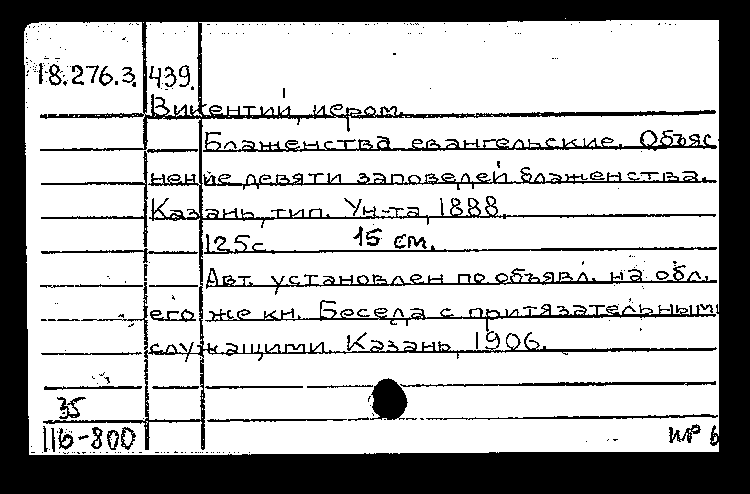 18.276.3. 439.
Викентий, иером.
Блаженства евангельские. Объяс
нение девяти заповедей блаженства.
Казань, тип. Ун-та, 1888.
125с. 15 см.
Авт. установлен по объявл. на обл.
его же кн. Беседа с притязательными
служащими. Казань, 1906.
35
116-800